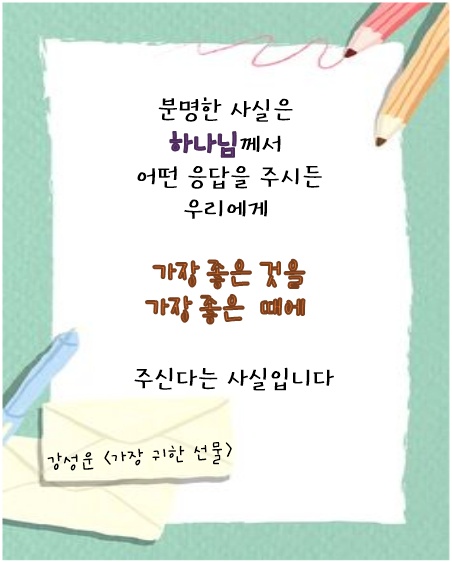 분명한 사실은
하나님께서
어떤 응답을 주시든
우리에게
가장 좋은 것을
가장 좋은 때에
주신다는 사실입니다
강성운 <가장 귀한 선물>